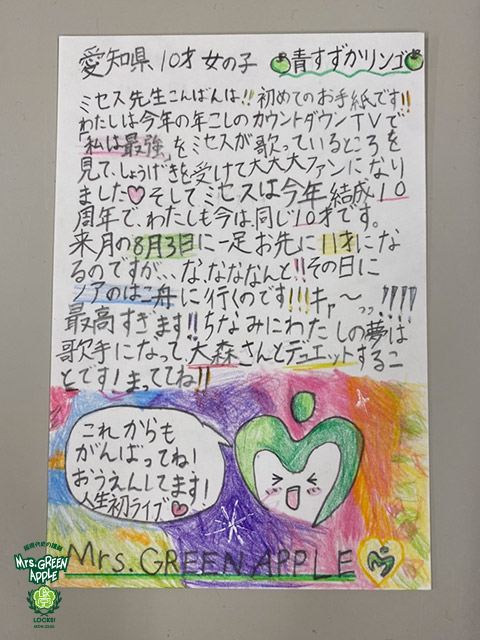 愛知県 10才 女の子 青すずかリンゴ
ミセス先生こんばんは!! 初めてのお手紙です!!
わたしは今年の年こしのカウントダウンTVで
「私は最強」をミセスが歌っているところを
見て、しょうげきを受けて大大大ファンになり
ました♡そして、ミセスは今年結成10
周年で、わたしも今は同じ10才です。
来月の8月3日に一足お先に11才にな
るのですが、、な、なななんと!!その日に
ノアのはこ舟に行くのです!!!キャ〜っっ!!!!
最高すぎます!!ちなみにわたしの夢は
歌手になって、大森さんとデュエットするこ
とです!まっててね!!
これからも
がんばってね!
おうえんしてます!
人生初ライブ♡
Mrs. GREEN APPLE
Mrs. GREEN
APPLE
LOCKS!